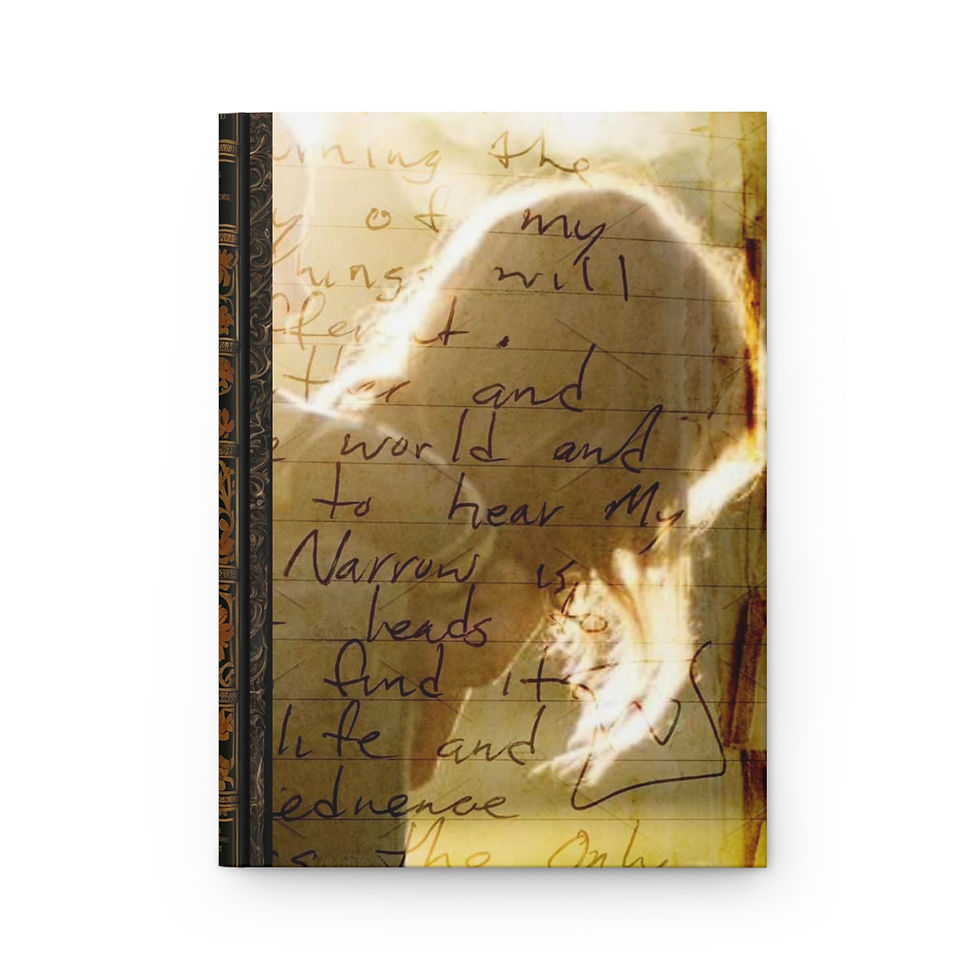 rning the
y of my
things will
fferent.
ther and
e world and
to hear My
Narrow is,
- leads to
find it.
life and
iednence
ss the Only